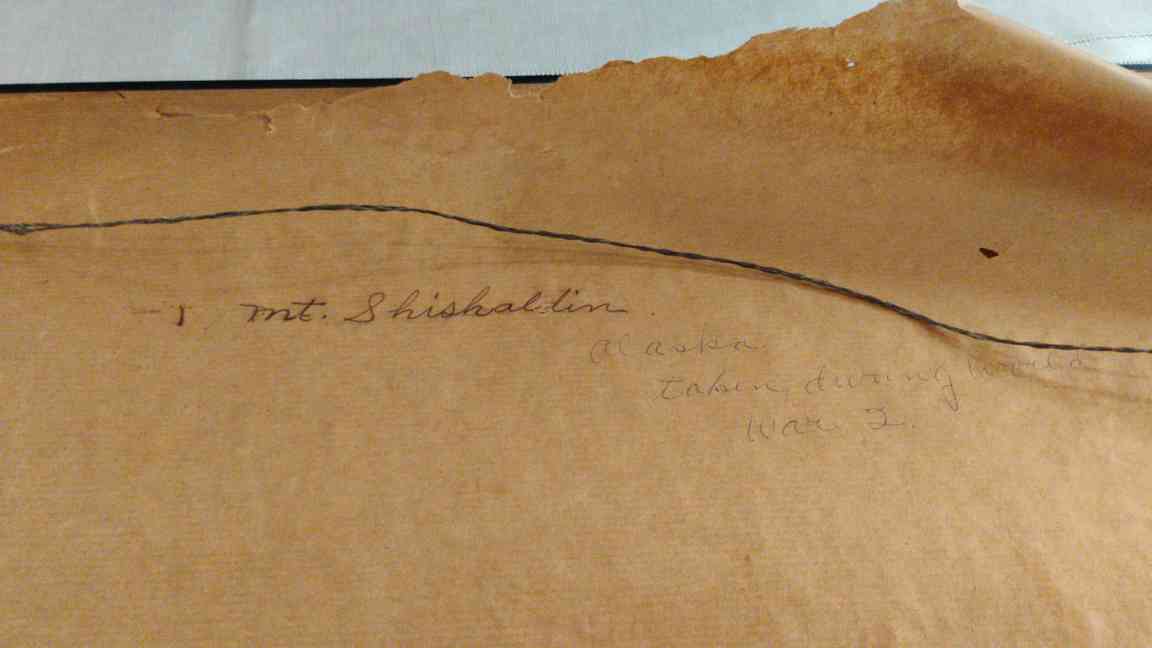 Mt. Shishaldin.
Alaska.
taken during World
War 2.